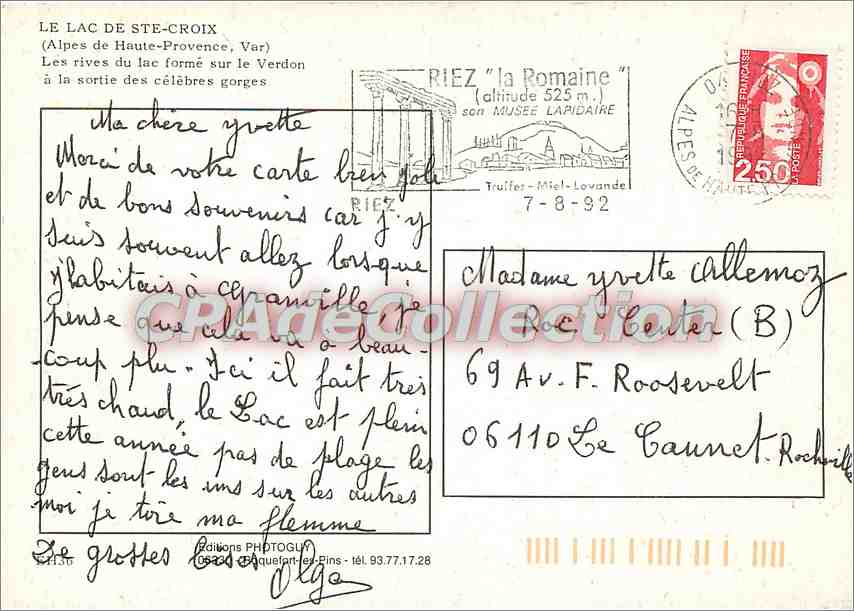 LE LAC DE STE-CROIX
(Alpes de Haute-Provence, Var)
Les rives du lac formé sur le Verdon
à la sortie des célèbres gorges
RIEZ "la Romaine"
(altitude 525 m.)
son MUSEE LAPIDAIRE
Truffes-Miel-Lavande
RIEZ
7-8-92
ALPES DE HAUTE
REPUBLIQUE FRANÇAISE
2,50
LA POSTE
Ma chère yvette
Merci de votre carte bien jolie
et de bons souvenirs car j'y
suis souvent allez lorsque
j'habitais à Granville, je
pense que cela va a beau-
coup plu. Ici il fait très
très chaud, le Lac est plein
cette année pas de plage les
gens sont les uns sur les autres
moi je tire ma flemme
De grosses bises
Olga
Madame yvette Allemoz
Roc. Center (B)
69 Av. F. Roosevelt
06110 Le Cannet. Rocheville
CPAdeCollection.com
Editions PHOTOGUY
06330 - Roquefort-les-Pins - tél. 93.77.17.28